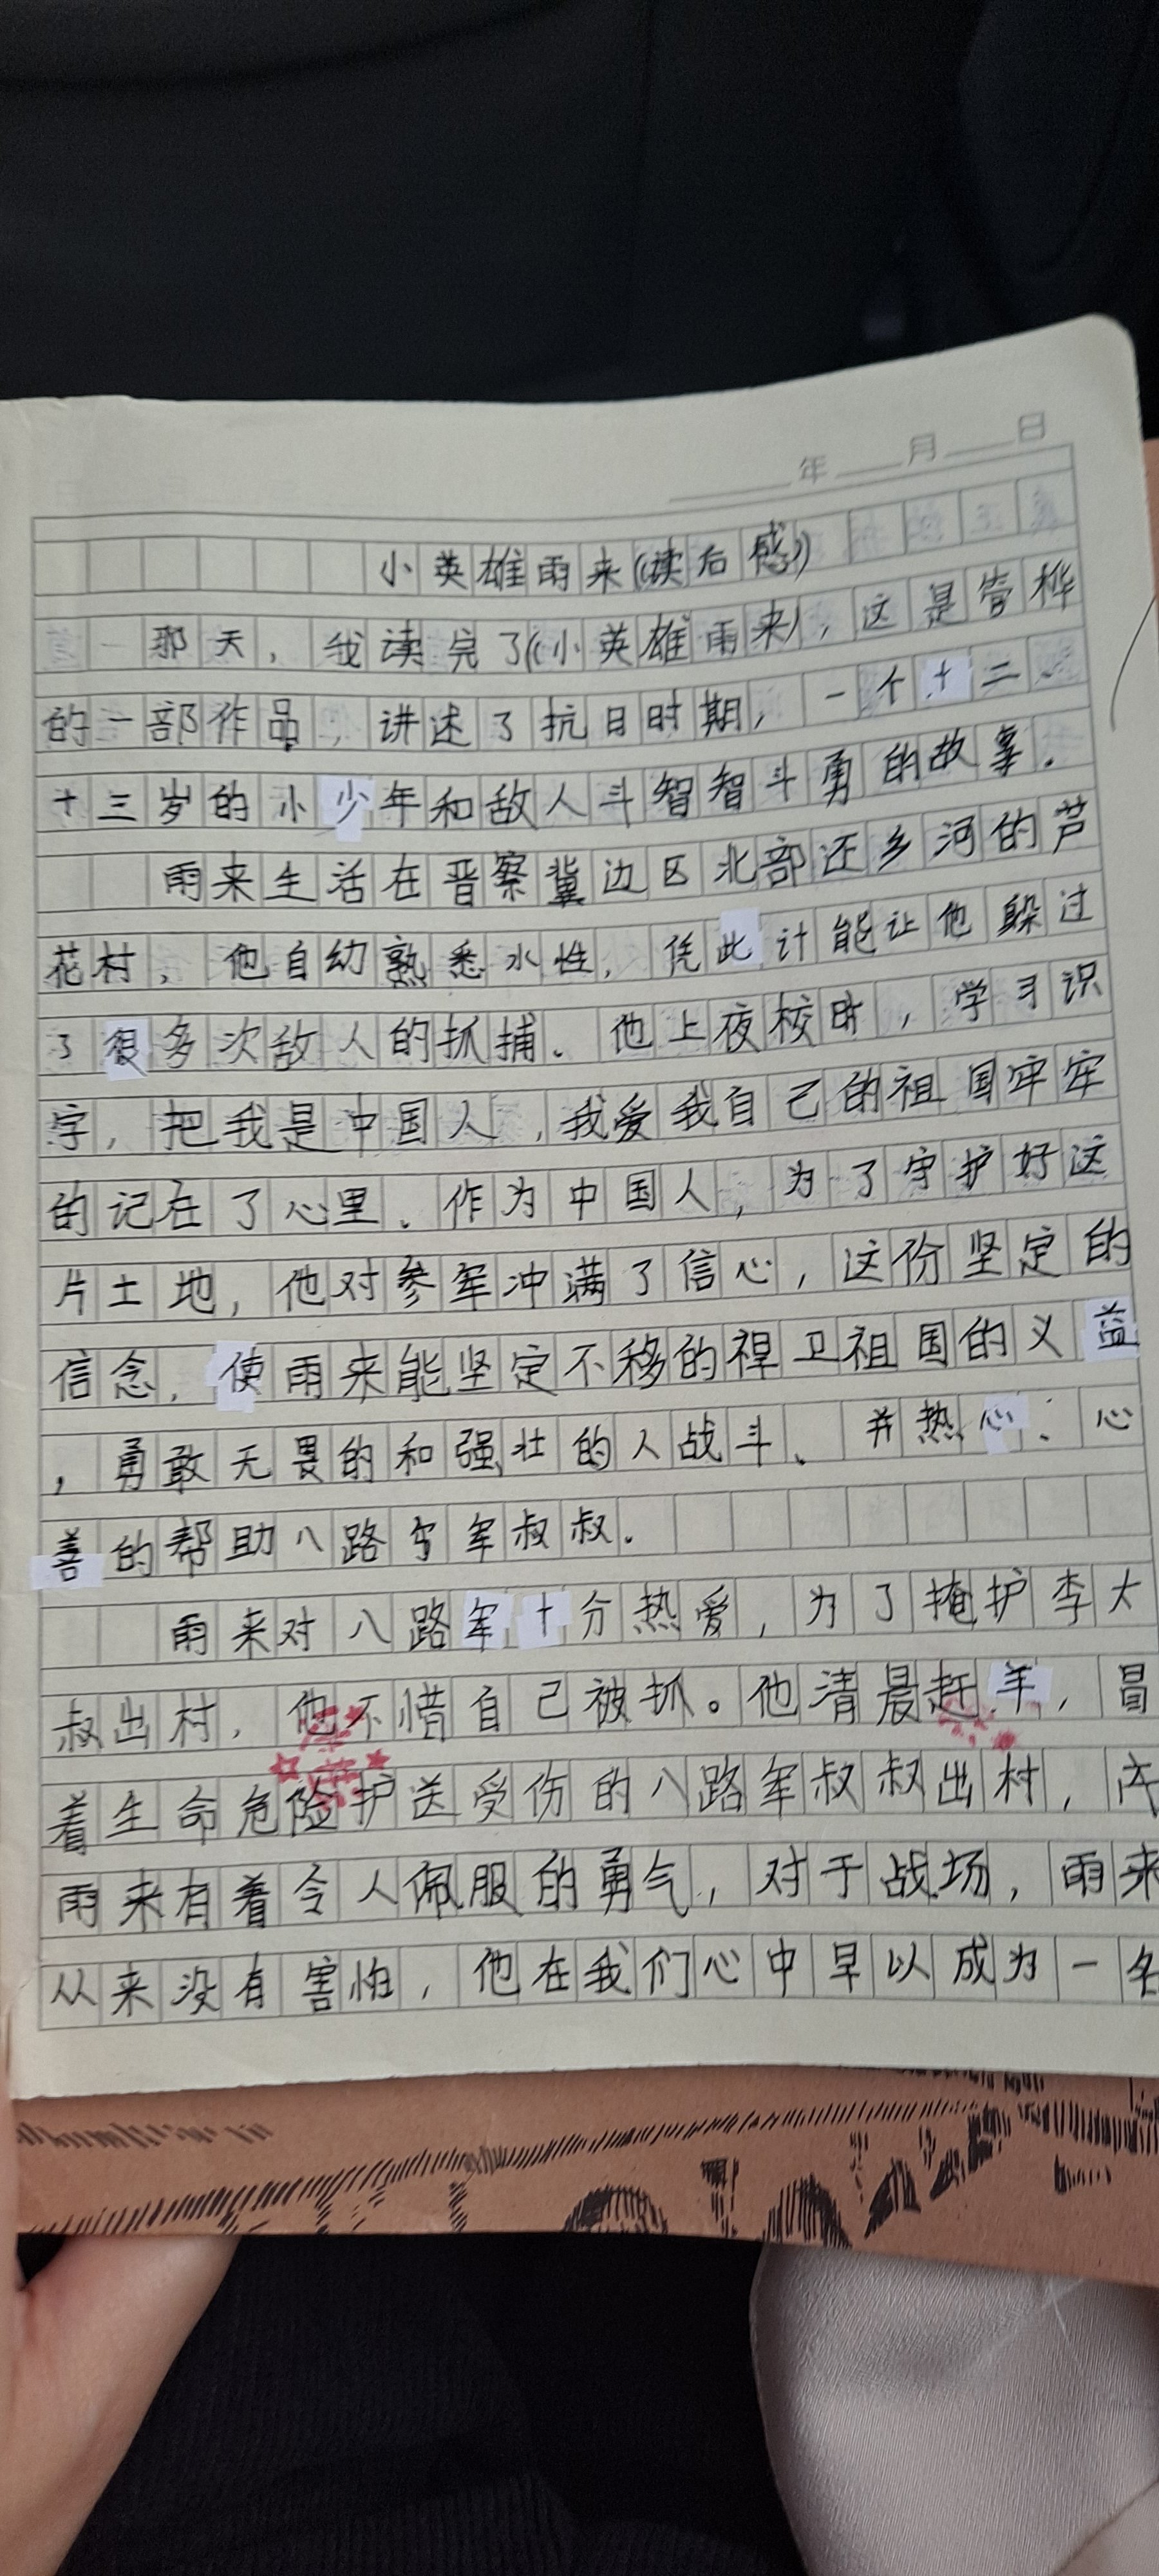 年 月 日
小英雄雨来(读后感)
那天，我读完了《小英雄雨来》，这是管桦
的一部作品，讲述了抗日时期，一个十二
十三岁的小少年和敌人斗智智斗勇的故事。
雨来生活在晋察冀边区北部还乡河的芦
花村，他自幼熟悉水性，凭此计能让他躲过
了很多次敌人的抓捕。他上夜校时，学习识
字，把我是中国人，我爱我自己的祖国牢牢
的记在了心里。作为中国人，为了守护好这
片土地，他对参军冲满了信心，这份坚定的
信念，使雨来能坚定不移的捍卫祖国的义益
，勇敢无畏的和强壮的人战斗、并热心：心
善的帮助八路军叔叔。
雨来对八路军十分热爱，为了掩护李大
叔出村，他不惜自己被抓。他清晨赶羊，冒
着生命危险护送受伤的八路军叔叔出村，
雨来有着令人佩服的勇气，对于战场，雨来
从来没有害怕，他在我们心中早以成为一名